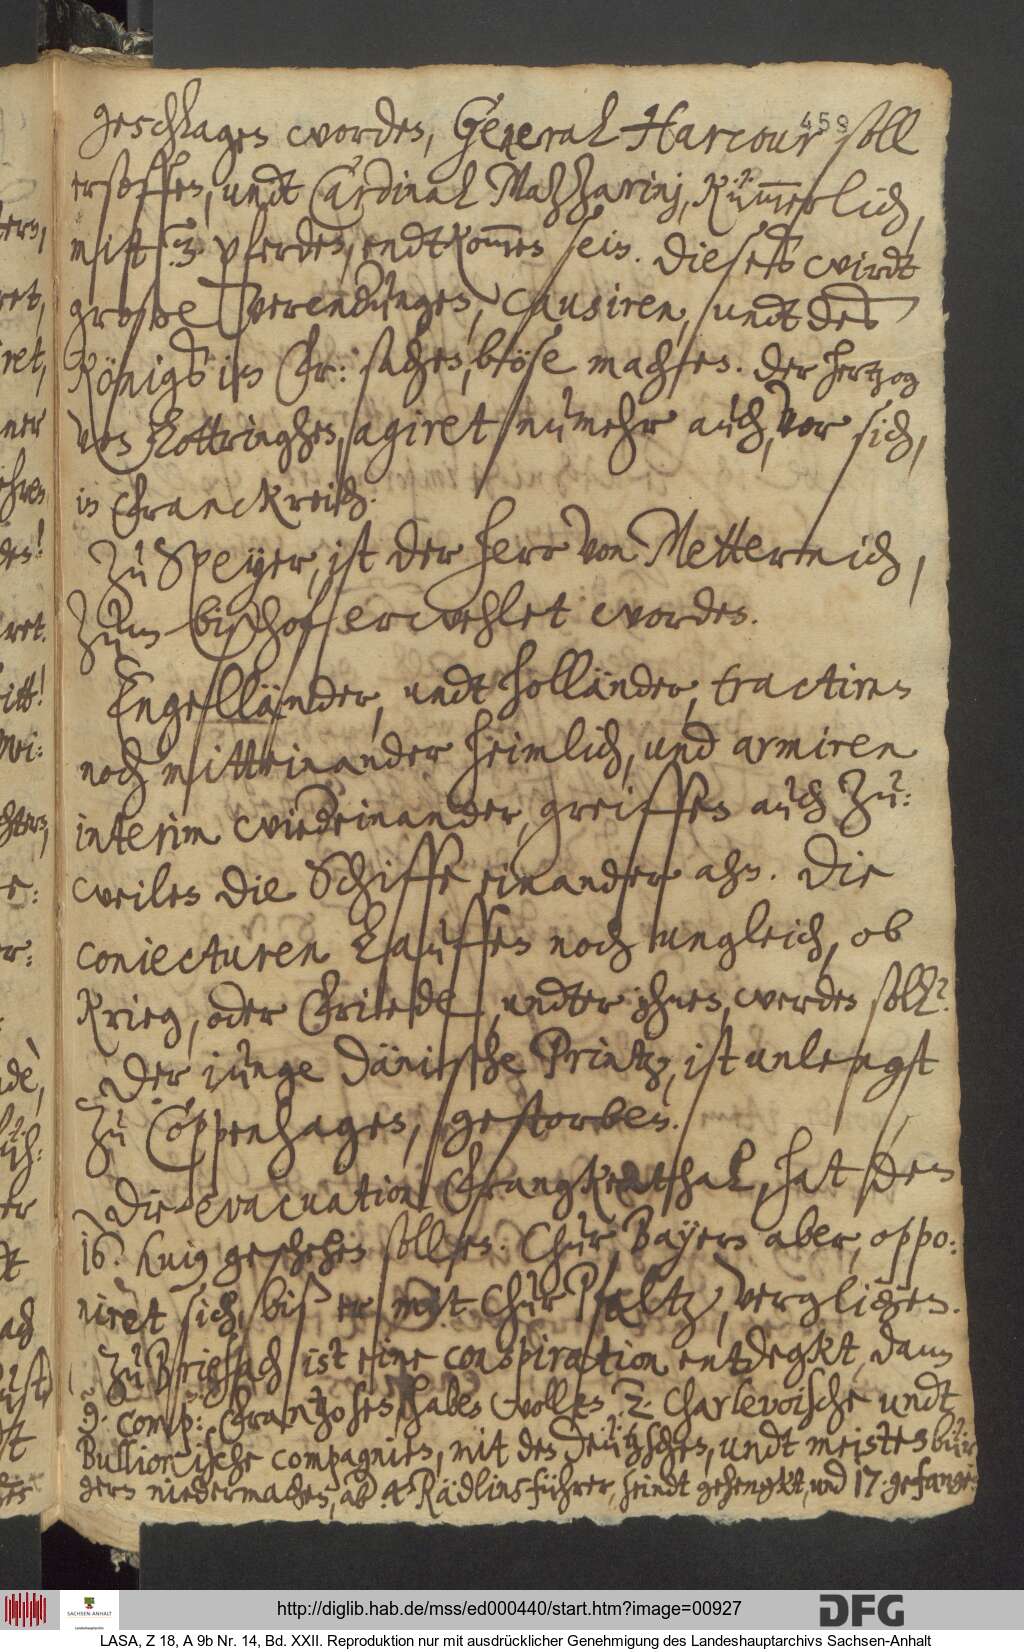 459
geschlagen worden, General Harcour soll
ersoffen, undt Cardinal Mazzarinj, kümmerlich,
mitt 3 pferden, endtkommen sein. Dieses wirdt
große verendungen, causiren, undt des
Königs in Fr: sachen, böse machen. Der Hertzog
von Lottringhen, agiret numehr auch, vor sich,
in Franckreich.
Zu Speyer, ist der Herr von Metternich,
zum bischof erwehlet worden.
Engelländer, undt Holländer, tractiren
noch mitteinander heimlich, und armiren
interim wiedeinander, greiffen auch zu:
weilen die Schiffe einander ahn. Die
coniecturen lauffen noch ungleich, ob
Krieg, oder Friede, undter ihnen, werden soll?
Der iunge Dänische Printz, ist unlengst
zu Coppenhagen, gestorben.
Die evacuation Frangkenthal, hat den
16. huius geschehen sollen. Chur Bayern aber, oppo:
niret sich, biß er mit Chur Pfaltz, verglichen.
Zu Briesach ist eine conspiration entdegkt, dann
9. comp: Frantzosen haben wollen 2. Charlevoische undt
Bullionische compagnien, mit den Deützschen, undt meisten bür
gern niedermachen, ab 4 Rädlinsführer, seindt gehengkt, und 17. gefangen
http://diglib.hab.de/mss/ed000440/start.htm?image=00927
SACHSEN-ANHALT
DFG
LASA, Z 18, A 9b Nr. 14, Bd. XXII. Reproduktion nur mit ausdrücklicher Genehmigung des Landeshauptarchivs Sachsen-Anhalt